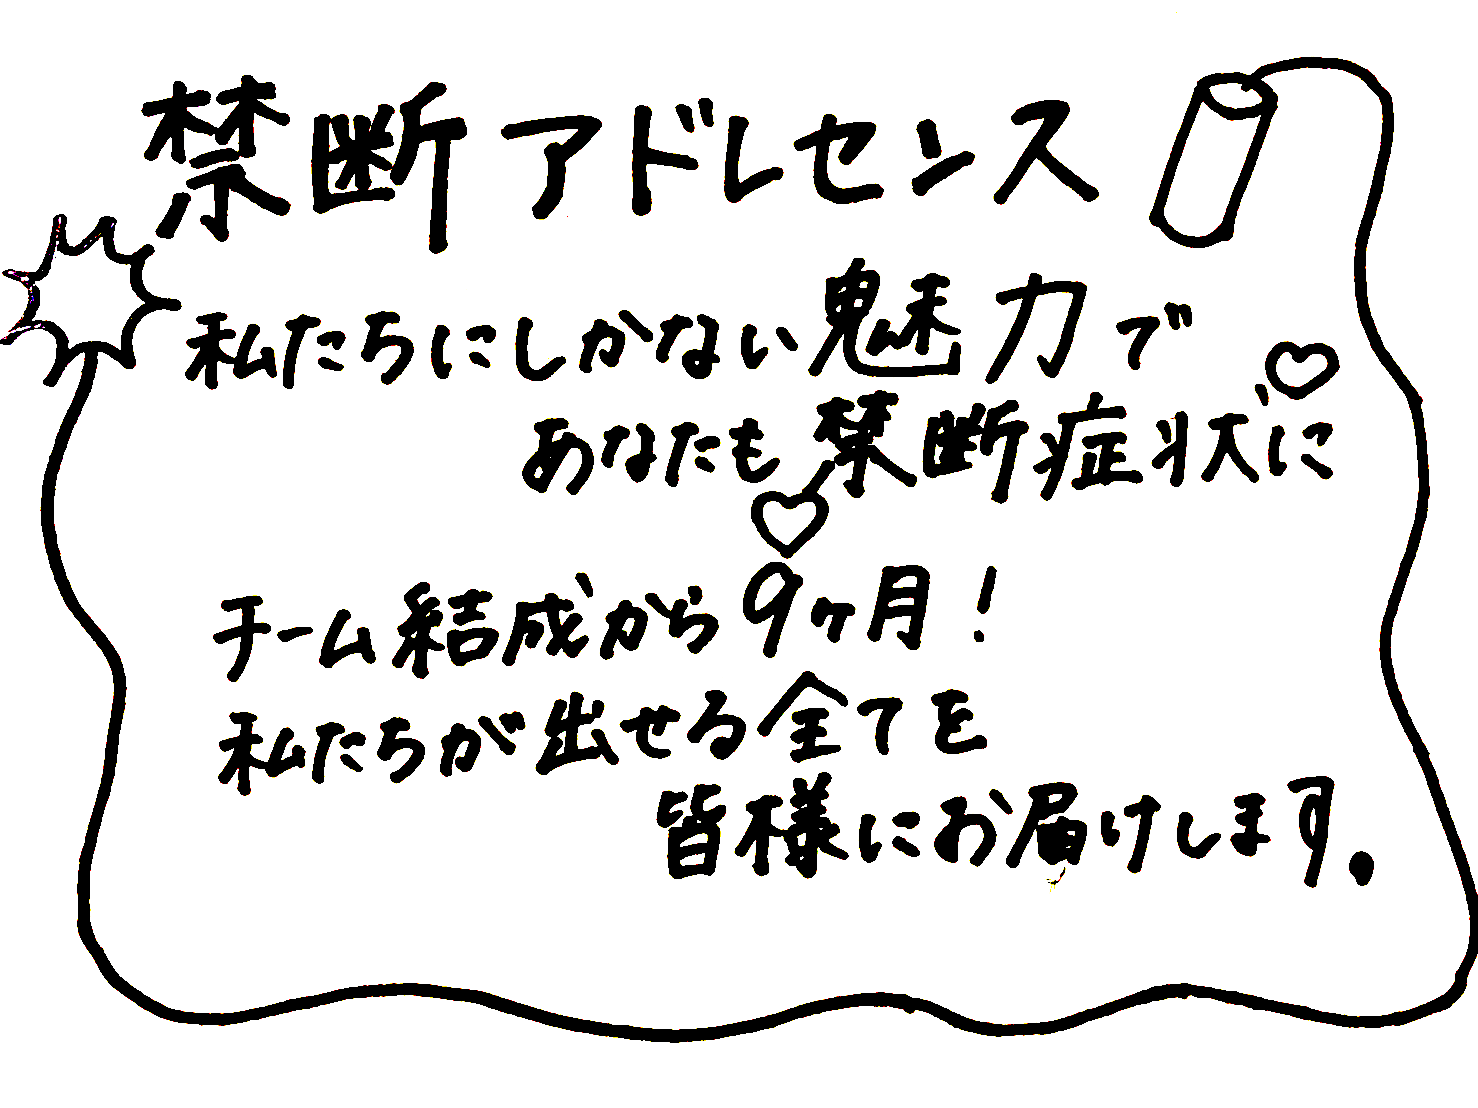 禁断アドレセンス
私たちにしかない魅力で
あなたも禁断症状に
チーム結成から9ヶ月!
私たちが出せる全てを
皆様にお届けします。